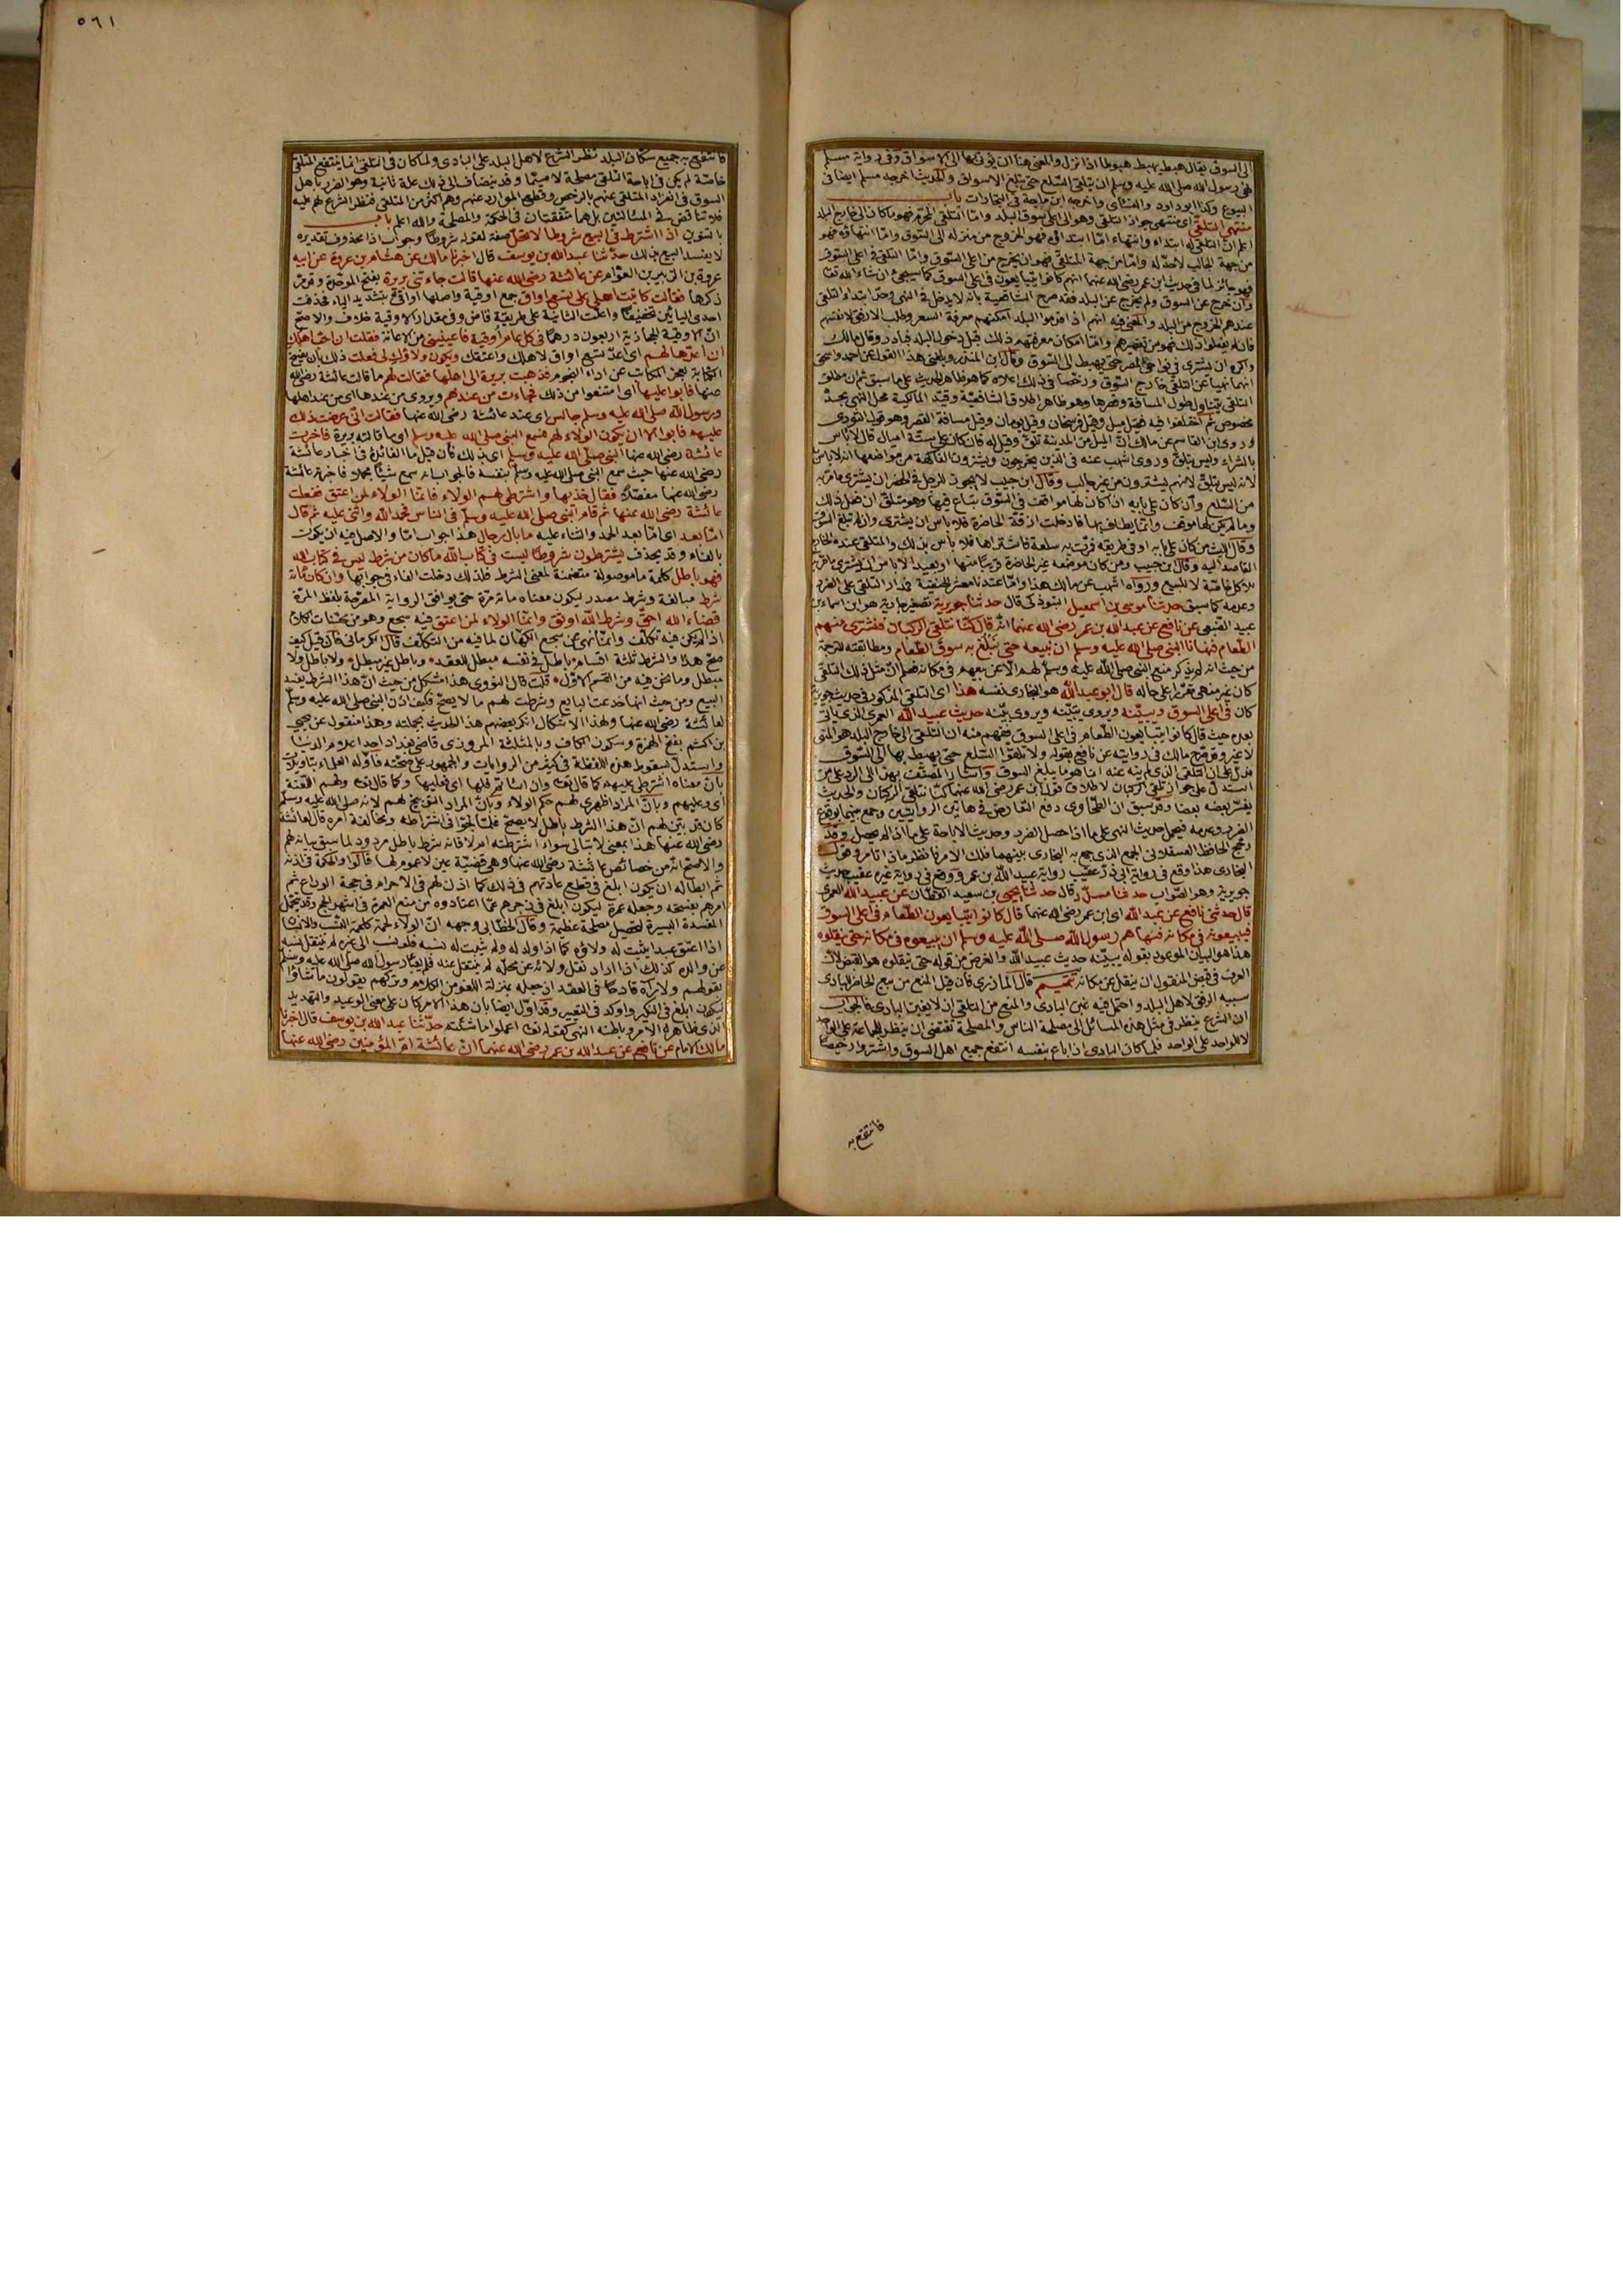 الى السوق يقال هبط يهبط هبوطا اذا نزل والمعنى هنا ان يؤتى بها الى الاسواق وفي رواية مسلم
نهى رسول الله صلى الله عليه وسلم ان يتلقى السلع حتى يبلغ الاسواق والحديث اخرجه مسلم ايضا في
البيوع وكذا ابو داود والنسائى واخرجه ابن ماجة في التجارات باب
منتهى التلقى اى منتهى جواز التلقى وهو الى اعلى سوق البلد واما التلقى المحرم فهو ما كان الى خارج البلد
اعلم ان التلقى له ابتداء وانتهاء اما ابتداؤه فهو الخروج من منزله الى السوق واما انتهاؤه فهو
من جهة الجالب لا حد له واما من جهة المتلقى فهو ان يخرج من اعلى السوق واما التلقى في اعلى السوق
فهو جائز لما في حديث ابن عمر رضى الله عنهما انهم كانوا يتبايعون في اعلى السوق كما سيجئ ان شاء الله تعا
وان خرج عن السوق ولم يخرج عن البلد فقد صرح الشافعية بانه لا يدخل في النهى وحد ابتداء التلقى
عندهم الخروج من البلد والمعنى فيه انهم اذا قدموا البلد امكنهم معرفة السعر وطلب الارفق لانفسهم
فان لم يفعلوا ذلك فهو من تقصيرهم واما امكان معرفتهم ذلك قبل دخول البلد فنادر وقال مالك
واكره ان يشترى في نواحى المصر حتى يهبط الى السوق وقال ابن المنذر وبلغنى هذا القول عن احمد واسحق
انهما نهيا عن التلقى خارج السوق ورخصا في ذلك اعلاه كما هو ظاهر الحديث على ما سبق ثم ان مطلق
التلقى يتناول طول المسافة وقصرها وهو ظاهر اطلاق الشافعية وقيد المالكية محل النهى بحد
مخصوص ثم اختلفوا فيه فقيل ميل وقيل فرسخان وقيل يومان وقيل مسافة القصر وهو قول الثورى
وروى ابن القاسم عن مالك ان الميل من المدينة تلق وقيل له فان كان على ستة اميال قال لا باس
بالشراء وليس بتلق وروى اشهب عنه في الذين يخرجون ويشترون الفاكهة من مواضعها انه لا باس
لانه ليس بتلق لانهم يشترون من غير جالب وقال ابن حبيب لا يجوز للرجل في الحضر ان يشترى ما مر به
من السلع وان كان على بابه اذا كان لها مواقف في السوق تباع فيها وهو متلق ان فعل ذلك
وما لم يكن لها موقف وانما يطاف بها فادخلت ازقة الحاضرة فلا باس ان يشترى وان لم تبلغ السوق
وقال الليث من كان على بابه او في طريقه فمرت به سلعة فاشتراها فلا باس بذلك والمتلقى عنده الخارج
القاصد اليه وقال ابن حبيب ومن كان موضعه غير الحاضرة قريبا منها او بعيدا لا باس ان يشترى ما مر به
للاكل خاصة لا للبيع ورواه اشهب عن مالك هذا واما عندنا معشر الحنفية فمدار التلقى على الضرر
وعدمه كما سبق حدثنا موسى بن اسمعيل التبوذكى قال حدثنا جويرية تصغير جارية هو ابن اسماء بن
عبيد الضبعى عن نافع عن عبد الله بن عمر رضى الله عنهما انه قال كنا نتلقى الركبان فنشترى منهم
الطعام فنهانا النبى صلى الله عليه وسلم ان نبيعه حتى يبلغ به سوق الطعام ومطابقته للترجمة
من حيث انه لم يذكر منع النبى صلى الله عليه وسلم لهم الا عن بيعهم في مكانه فعلم ان مثل ذلك التلقى
كان غير منهى مقرا على حاله قال ابو عبد الله هو البخارى نفسه هذا اى التلقى المذكور في حديث جويرية
كان في اعلى السوق وبينته ويروى يبينه ويروى بينه حديث عبيد الله العمرى الذى ياتى
بعده حيث قال كانوا يتبايعون الطعام في اعلى السوق ففهم منه ان التلقى الى خارج البلد هو المنهى
لا غير وقد صرح مالك في روايته عن نافع بقوله ولا تلقوا السلع حتى يهبط بها الى السوق
فدل على ان التلقى الذى لم ينه عنه انما هو ما يبلغ السوق واشار المصنف بهذا الى الرد على من
استدل على جواز تلقى الركبان لاطلاق قول ابن عمر رضى الله عنهما كنا نتلقى الركبان والحديث
يفسر بعضه بعضا وقد سبق ان الطحاوى دفع التعارض في هاتين الروايتين وجمع بينهما بوقوع
الضرر وعدمه فيحمل حديث النهى على ما اذا حصل الضرر وحديث الاباحة على ما اذا لم يحصل وقد
رجح الحافظ العسقلانى الجمع الذى جمع به البخارى بينهما فلك الامر فانظر ماذا تامر وقول
البخارى هذا وقع في رواية ابى ذر عقيب رواية عبيد الله بن عمر ووقع في رواية غيره عقيب حديث
جويرية وهو الصواب حدثنا مسدد قال حدثنا يحيى بن سعيد القطان عن عبيد الله العمرى
قال حدثنى نافع عن عبد الله اى ابن عمر رضى الله عنهما قال كانوا يتبايعون الطعام في اعلى السوق
فيبيعونه في مكانه فنهاهم رسول الله صلى الله عليه وسلم ان يبيعوه في مكانه حتى ينقلوه
هذا هو البيان الموعود بقوله يبينه حديث عبيد الله والغرض من قوله حتى ينقلوه هو القبض لان
العرف في قبض المنقول ان ينقل عن مكانه تتميم قال المازرى فان قيل المنع من بيع الحاضر للبادى
سببه الرفق لاهل البلد واحتمل فيه غبن البادى والمنع من التلقى ان لا يغبن البادى فالجواب
ان الشرع ينظر في مثل هذه المسائل الى مصلحة الناس والمصلحة تقتضى ان ينظر للجماعة على الواحد
لا للواحد على الواحد فلما كان البادى اذا باع بنفسه انتفع جميع اهل السوق واشتروا رخيصا
فانتفع به
٥٦١
فانتفع به جميع سكان البلد نظر الشرع لاهل البلد على البادى ولما كان في التلقى انما ينتفع المتلقى
خاصة لم يكن في اباحة التلقى مصلحة لا سيما وقد ينضاف الى ذلك علة ثانية وهو الضرر باهل
السوق في انفراد المتلقى عنهم بالرخص وقطع الموارد عنهم وهم اكثر من المتلقى فنظر الشرع لهم عليه
فلا تناقض في المسالتين بل هما متفقتان في الحكمة والمصلحة والله اعلم باب
بالتنوين اذا اشترط في البيع شروطا لا تحل صفة لقوله شروطا وجواب اذا محذوف تقديره
لا يفسد البيع بذلك حدثنا عبد الله بن يوسف قال اخبرنا مالك عن هشام بن عروة عن ابيه
عروة بن الزبير بن العوام عن عائشة رضى الله عنها قالت جاءتنى بريرة بفتح الموحدة وقد مر
ذكرها فقالت كاتبت اهلى على تسع اواق جمع اوقية واصلها اواقى بتشديد الياء فحذفت
احدى اليائين تخفيفا واعلت الثانية على طريقة قاض وفي مقدار الاوقية خلاف والاصح
ان الاوقية الحجازية اربعون درهما في كل عام اوقية فاعينينى من الاعانة فقلت ان احب اهلك
ان اعدها لهم اى اعد تسع اواق لاهلك واعتقك ويكون ولاؤك لى فعلت ذلك بان يفسخ
الكتابة لعجز المكاتب عن اداء النجوم فذهبت بريرة الى اهلها فقالت لهم ما قالت عائشة رضى الله
عنها فابوا عليها اى امتنعوا من ذلك فجاءت من عندهم ويروى من عندها اى من عند اهلها
ورسول الله صلى الله عليه وسلم جالس اى عند عائشة رضى الله عنها فقالت انى عرضت ذلك
عليهم فابوا الا ان يكون الولاء لهم فسمع النبى صلى الله عليه وسلم اى ما قالته بريرة فاخبرت
عائشة رضى الله عنها النبى صلى الله عليه وسلم اى بذلك فان قيل ما الفائدة في اخبار عائشة
رضى الله عنها حيث سمع النبى صلى الله عليه وسلم بنفسه فالجواب انه سمع شيئا مجملا فاخبرته عائشة
رضى الله عنها مفصلا فقال خذيها واشترطى لهم الولاء فانما الولاء لمن اعتق ففعلت
عائشة رضى الله عنها ثم قام النبى صلى الله عليه وسلم في الناس فحمد الله واثنى عليه ثم قال
اما بعد اى اما بعد الحمد والثناء عليه ما بال رجال هذا جواب اما والاصل فيه ان يكون
بالفاء وقد يحذف يشترطون شروطا ليست في كتاب الله ما كان من شرط ليس في كتاب الله
فهو باطل كلمة ما موصولة متضمنة لمعنى الشرط فلذلك دخلت الفاء في جوابها وان كان مائة
شرط مبالغة وشرط مصدر ليكون معناه مائة مرة حتى يوافق الرواية المصرحة بلفظ المرة
قضاء الله احق وشرط الله اوثق وانما الولاء لمن اعتق فيه سجع وهو من محسنات الكلام
اذا لم يكن فيه تكلف وانما نهى عن سجع الكهان لما فيه من التكلف قال الكرمانى فان قيل كيف
صح هذا والشرط ثلثة اقسام باطل في نفسه مبطل للعقد وباطل غير مبطل ولا باطل ولا
مبطل وما نحن فيه من القسم الاول قلت قال النووى هذا مشكل من حيث ان هذا الشرط يفسد
البيع ومن حيث انها خدعت البايع وشرطت لهم ما لا يصح فكيف اذن النبى صلى الله عليه وسلم
لعائشة رضى الله عنها ولهذا الاشكال انكر بعضهم هذا الحديث بجملته وهذا منقول عن يحيى
بن اكثم بفتح الهمزة وسكون الكاف وبالمثلثة المروزى قاضى بغداد احد اعلام الدنيا
واستدل بسقوط هذه اللفظة في كثير من الروايات والجمهور على صحته فاوله العلماء بتاويلات
بان معناه اشترطى عليهم كما قال تعا وان اسأتم فلها اى فعليها وكما قال تعا ولهم اللعنة
اى وعليهم وبان المراد اظهرى لهم حكم الولاء وبان المراد التوبيخ لهم لانه صلى الله عليه وسلم
كان قد بين لهم ان هذا الشرط باطل لا يصح فلما لجوا في اشتراطه ومخالفة امره قال لعائشة
رضى الله عنها هذا بمعنى لا تبالى سواء اشترطته ام لا فانه شرط باطل مردود لما سبق بيانه لهم
والاصح انه من خصائص عائشة رضى الله عنها وهى قضية عين لا عموم لها قالوا والحكمة في اذنه
ثم ابطاله ان يكون ابلغ في قطع عادتهم في ذلك كما اذن لهم في الاحرام في حجة الوداع ثم
امرهم بفسخه وجعله عمرة ليكون ابلغ في زجرهم عما اعتادوه من منع العمرة في اشهر الحج وقد تحتمل
المفسدة اليسيرة لتحصيل مصلحة عظيمة وقال الخطابى وجهه ان الولاء لحمة كلحمة النسب والانسان
اذا اعتق عبدا ثبت له ولاؤه كما اذا ولد له ولد ثبت له نسبه فلو نسب الى غيره لم ينتقل نسبه
عن والده كذلك اذا اراد نقل ولائه عن محله لم ينتقل عنه فلم يعبأ رسول الله صلى الله عليه وسلم
بقولهم ولا رآه قادحا في العقد اذ جعله بمنزلة اللغو من الكلام وتركهم يقولون ما شاؤا
ليكون ابلغ في النكير واوكد في التغيير وقد اول ايضا بان هذا الامر كان على معنى الوعيد والتهديد
الذى ظاهره الامر وباطنه النهى كقوله تعا اعملوا ما شئتم حدثنا عبد الله بن يوسف قال اخبرنا
مالك الامام عن نافع عن عبد الله بن عمر رضى الله عنهما ان عائشة ام المؤمنين رضى الله عنها